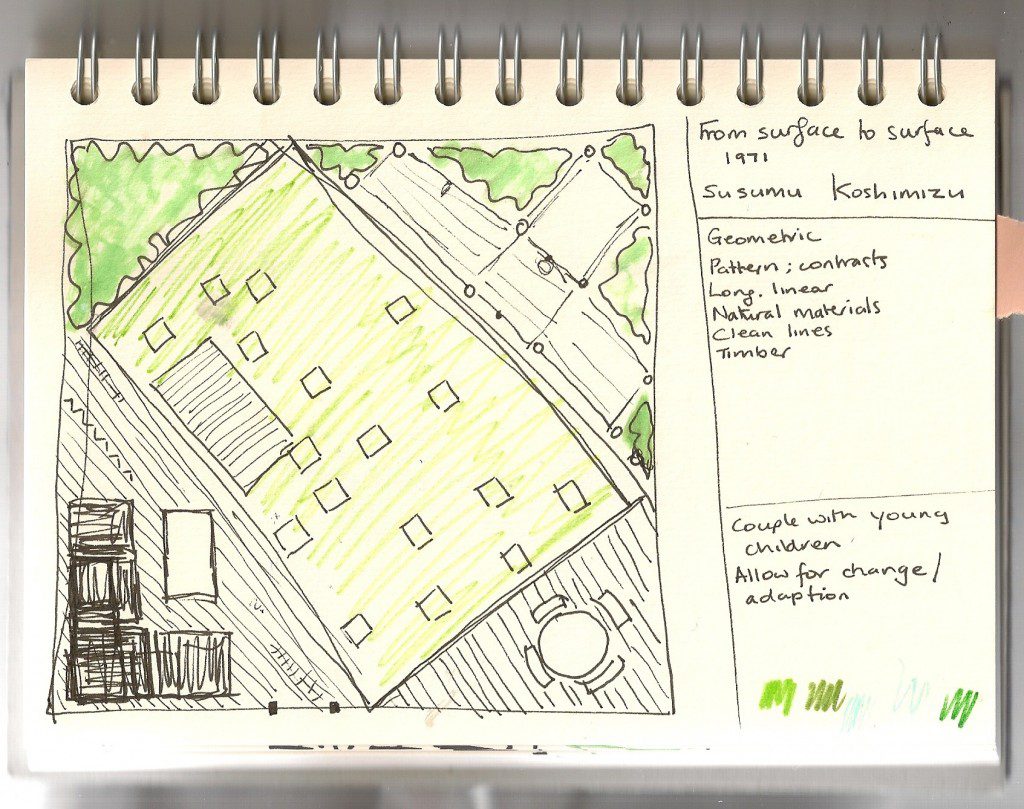 From surface to surface
1971
Susumu Koshimizu
Geometric
Pattern; contrasts
Long. linear
Natural materials
Clean lines
Timber
Couple with young
children
Allow for change/
adaption